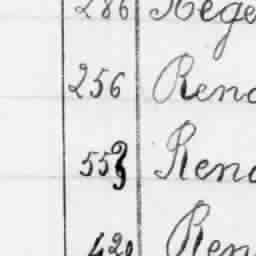 286 Rege
256 Reno
553 Reno
420 Ren